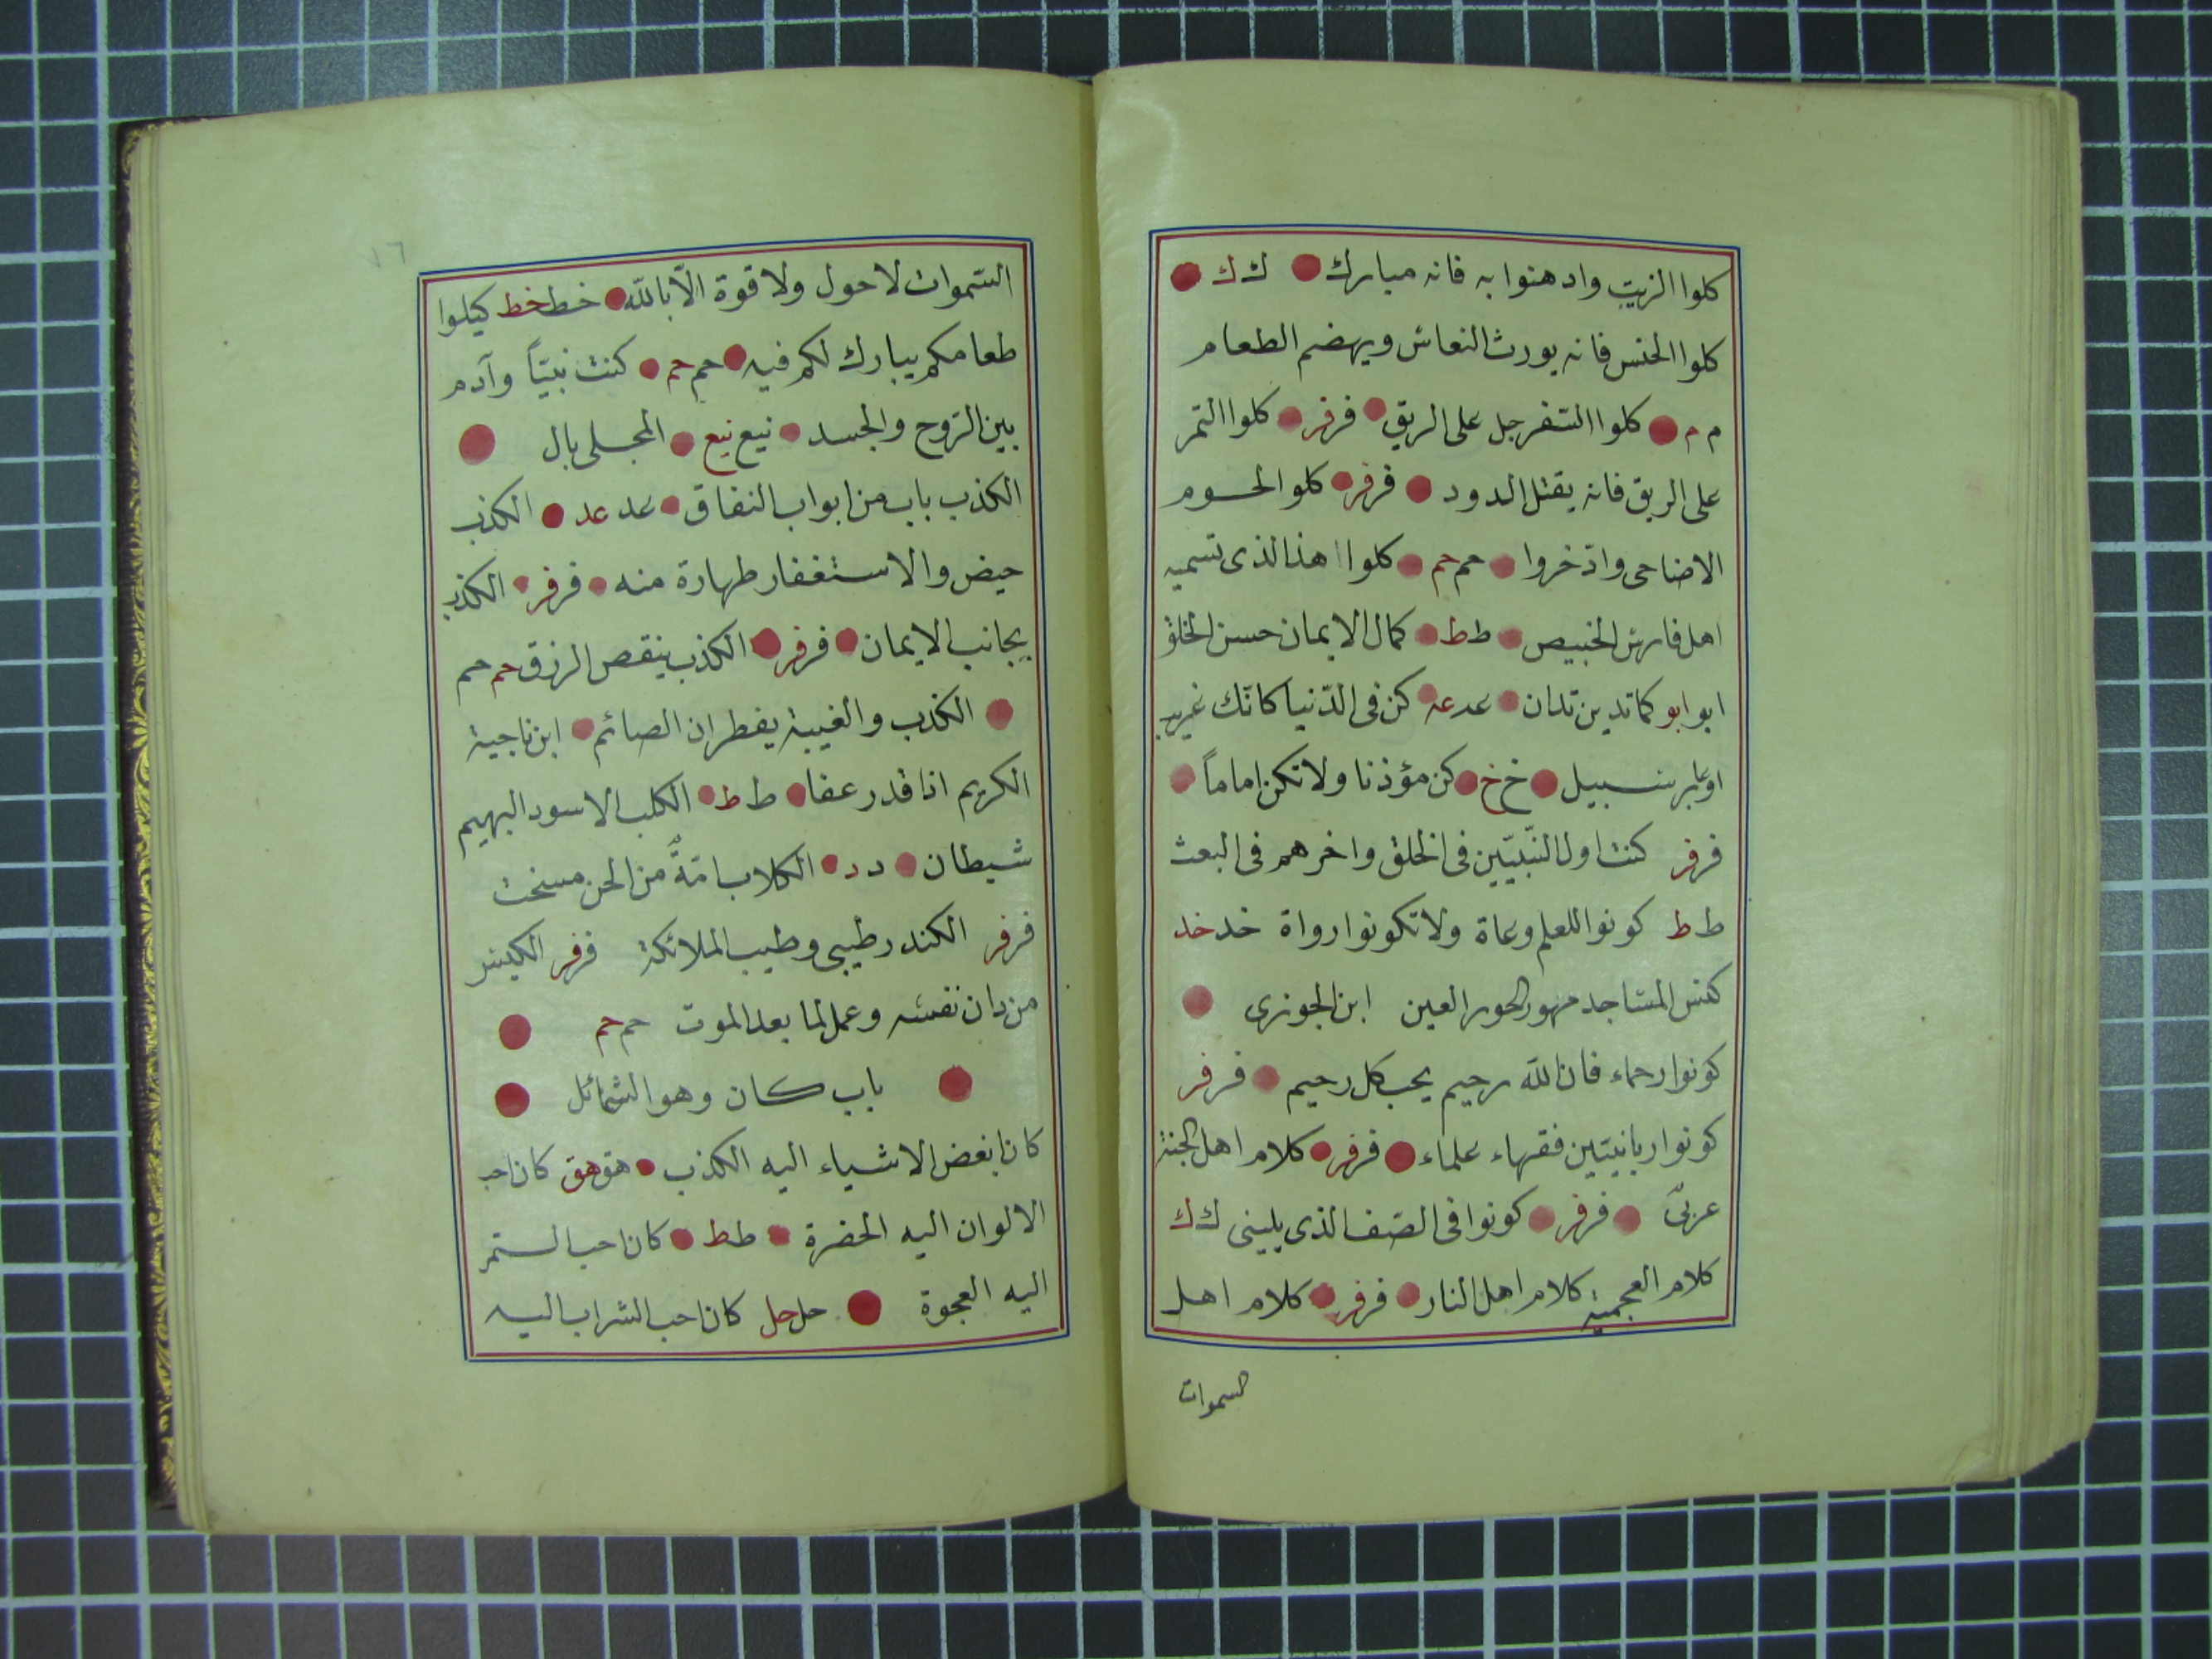 كلوا الزيت وادهنوا به فانه مبارك ● ك ك ●
كلوا الخس فانه يورث النعاس ويهضم الطعام
م م ● كلوا السّفرجل على الريق ● فر فر ● كلوا التمر
على الريق فانه يقتل الدود ● فر فر ● كلوا لحوم
الاضاحى وادّخروا ● حم حم ● كلوا هذا لذى تسميه
اهل فارس الخبيص ● ط ط ● كمال الايمان حسن الخلق
ابو ابو كما تدين تدان ● عد عد ● كن فى الدّنيا كانّك غريب
او عابر سبيل ● خ خ ● كن مؤذنا ولا تكن اماماً ●
فر فر كنت اول النّبيّين فى الخلق واخرهم فى البعث
ط ط كونوا للعلم وعاة ولا تكونوا رواة خد خد
كنس المساجد مهور الحور العين ابن الجوزى ●
كونوا رحماء فان الله رحيم يحب كل رحيم ● فر فر
كونوا ربانيّين فقهاء علماء ● فر فر ● كلام اهل الجنة
عربىّ ● فر فر ● كونوا فى الصّف الذى يلينى ك ك
كلام العجمية كلام اهل النار ● فر فر ● كلام اهل
السموات
٧٦
السّموات لا حول ولا قوة الّا بالله ● خط خط كيلوا
طعامكم يبارك لكم فيه ● حم حم ● كنت نبيّاً وآدم
بين الرّوح والجسد ● نيع نيع ● المجلى بال ●
الكذب باب من ابواب النفاق ● عد عد ● الكذب
حيض والاستغفار طهارة منه ● فر فر ● الكذب
يجانب الايمان ● فر فر ● الكذب ينقص الرزق حم حم
● الكذب والغيبة يفطران الصائم ● ابن ناجية
الكريم اذا قدر عفا ● ط ط ● الكلب الاسود البهيم
شيطان ● د د ● الكلاب امّةٌ من الجن مسخت
فر فر الكندر طيبى وطيب الملائكة فر فر الكيس
من دان نفسه وعمل لما بعد الموت حم حم ●
● باب كان وهو الشمائل ●
كان ابغض الاشياء اليه الكذب ● هق هق كان احب
الالوان اليه الخضرة ● ط ط ● كان احب التمر
اليه العجوة ● حل حل كان احب الشراب اليه